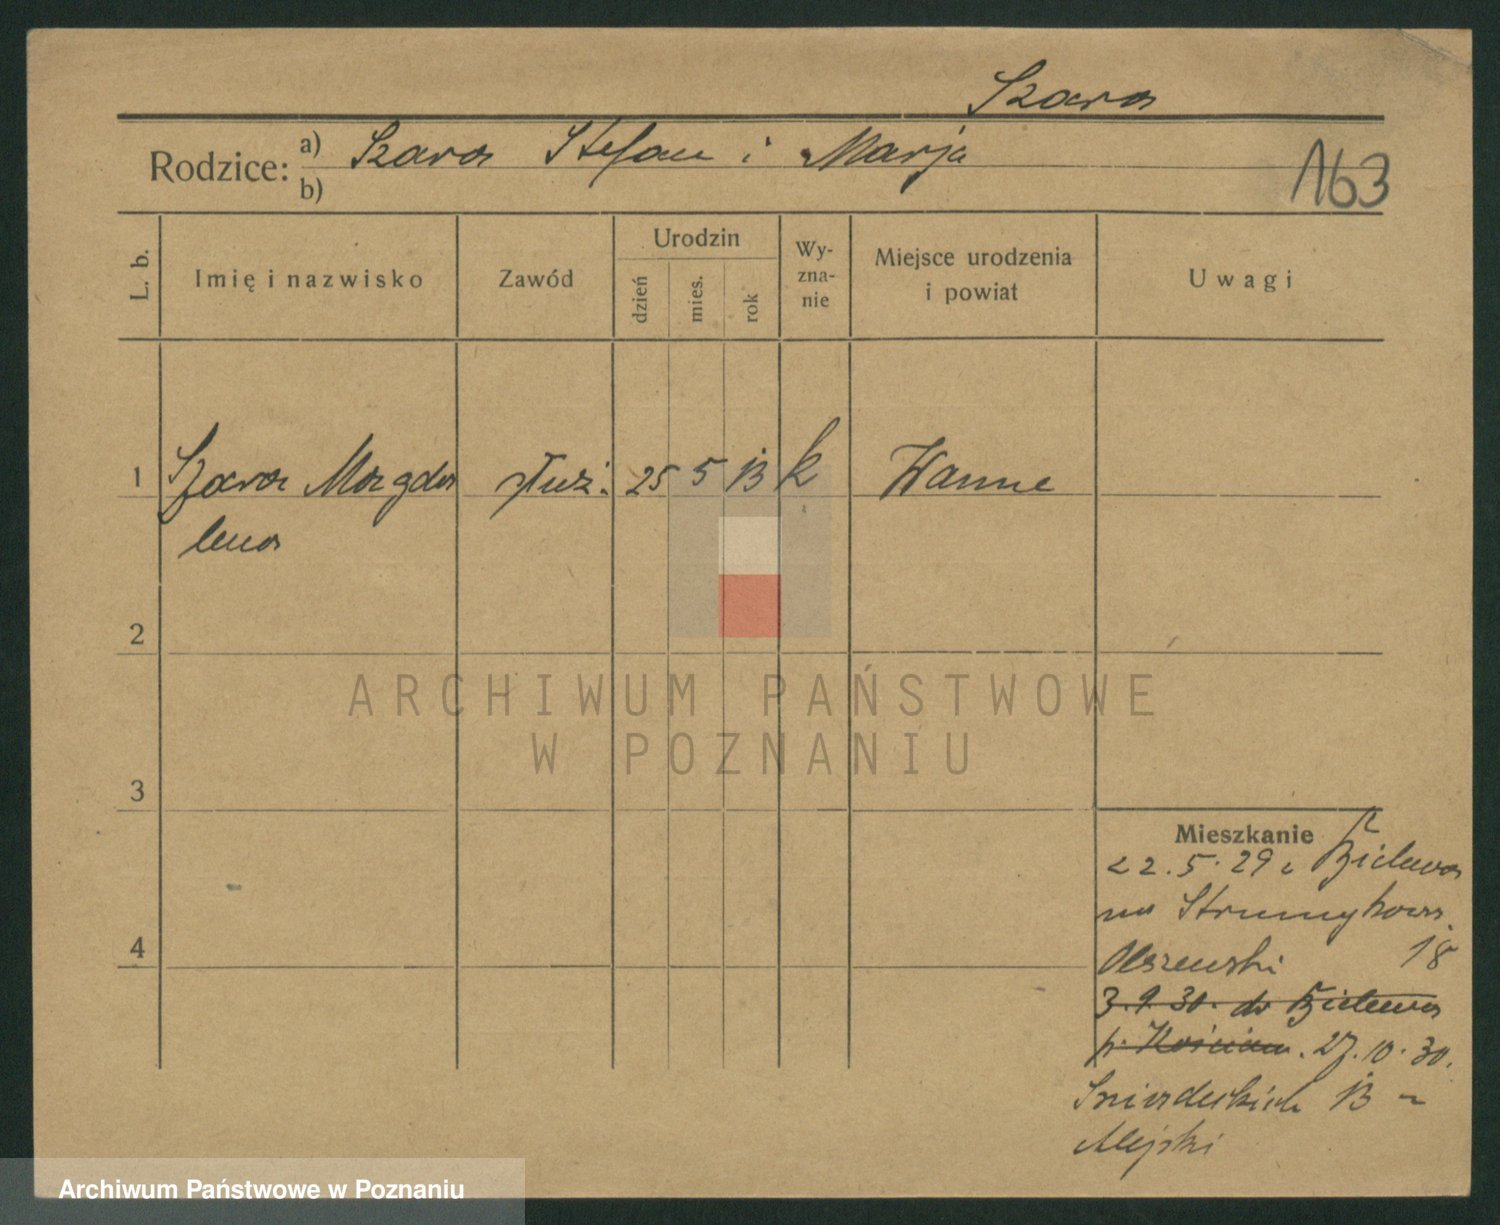 Szara
Rodzice: a) Szara Stefan i Marja
b)
163
L. b.
Imię i nazwisko
Zawód
Urodzin
dzień
mies.
rok
Wy-
zna-
nie
Miejsce urodzenia
i powiat
Uwagi
1 Szara Magda służ. 25 5 13 k Wanne
lena
2
ARCHIWUM PAŃSTWOWE
W POZNANIU
3
Mieszkanie
22.5.29 z Bielewa
na Strumykowa
Olszewski 18
3.9.30. do Bielewa
p. Kościan. 27.10.30.
Śniadeckich 13
4
Archiwum Państwowe w Poznaniu